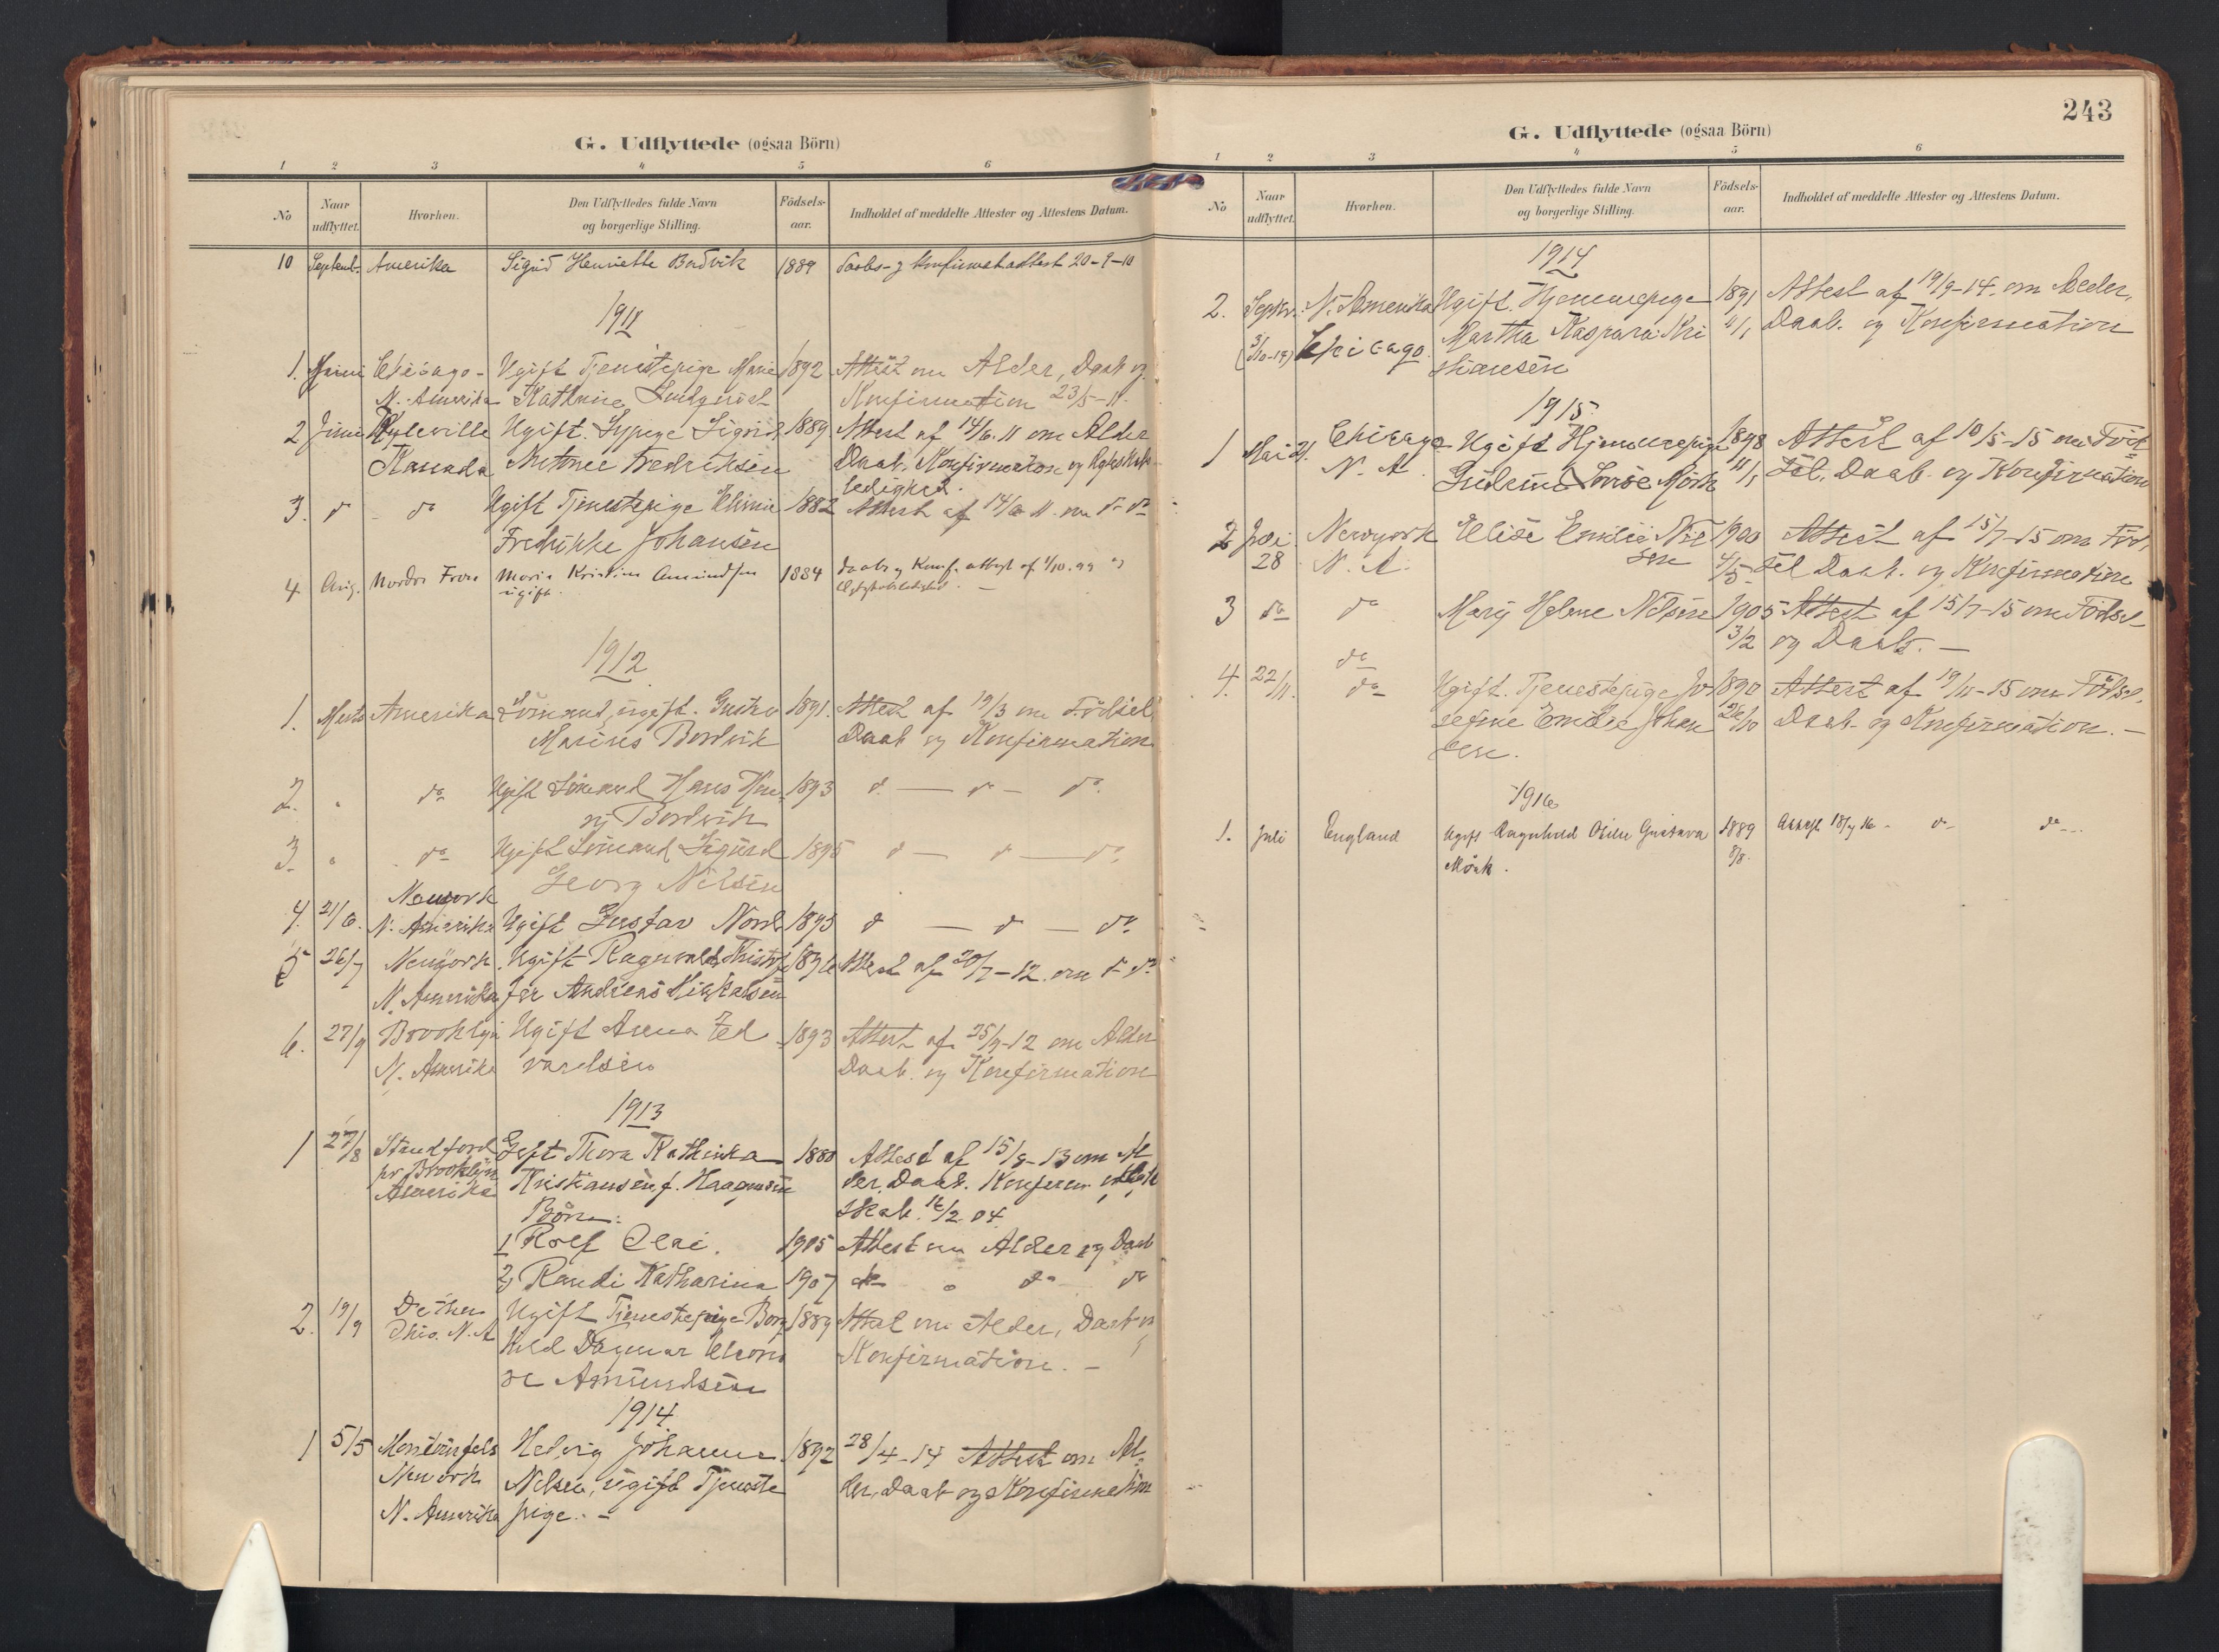 G. Udflyttede (ogsaa Börn)
1 2 3 4 5 6
No Naar udflyttet. Hvorhen. Den Udflyttedes fulde Navn og borgerlige Stilling. Födsels-aar. Indholdet af meddelte Attester og Attestens Datum.
10 Septemb. Amerika Sigrid Henriette Bordvik 1889 Daabs- og Konfirmatattest 20-9-10
1911
1. Chicago - Ugift Tjenestepige Marie 1892 Attest om Alder, Daab og
N. Amerika Kathrine Konfirmation 23/5-11.
2 Juni Ugift. Sypige Sigrid 1889 Attest af 14/6.11 om Alder
Kanada Fredriksen Daab, Konfirmation og Ægteskabs-
ledighed.
3. do do Ugift Tjenestepige 1882 Attest af 14/6 11. om do do
Fredrikke Johansen
4 Aug. Nordre Fron Maria Kristine Amundsen 1884 Daabs og Konf. attest af 1/10.99 og
ugift. —
1912
1. Marts Amerika Sömand, ugift. Gustav 1891. Attest af 19/3 om Födsel
Marius Bordvik Daab og Konfirmation
2. " do Ugift Sömand Hans Hen- 1893 do — do — do
rij Bordvik
3. " do Ugift Sömand Sigurd 1895 do — do — do
Georg Nilsen
Newyork
4. 21/6. N. Amerika Ugift Gustav Nord 1893 do — do — do
5 26/7 Newyork. Ugift Ragnvald Kristof 1896 Attest af 20/7-12. om do do
N. Amerika fer Andreas
6. 27/9 Brooklyn Ugift Anna Ed 1893 Attest af 25/9-12 om Alder
N. Amerika vardsen Daab. og Konfirmation
1913
1 27/8 Gift Thora Kathinka 1880 Attest af 15/8-13 om Al
pr Brooklyn Kristiansen, f. Haagensen der, Daab. Konferm.
Amerika
Börn: skab. 16/2.04
1 Rolf 1905 Attest om Alder og Daab
2) Randi Katharina 1907 do " do do
2. 19/9 Ugift Tjenestepige Borg 1889 Attest om Alder, Daab og
Ohio. N. A hild Dagmar Eleono Konfirmation. —
re Amundsen
1914
1 5/5 Hedvig Johanne 1892 28/4-14 Attest om Al-
Newyork Nilsen, ugift Tjeneste der, Daab og Konfirmation
N. Amerika pige. —
243
G. Udflyttede (ogsaa Börn)
1 2 3 4 5 6
No Naar udflyttet. Hvorhen. Den Udflyttedes fulde Navn og borgerlige Stilling. Födsels-aar. Indholdet af meddelte Attester og Attestens Datum.
1914
2. Septbr. N. Amerika Ugift. Hjemmepige 1891 Attest af 19/9-14. om Alder,
Chicago. Martha Kaspara Kri Daab. og Konfirmation
stiansen
1915
1 Mai 21. Chicago Ugift Hjemmepige 1898 Attest af 10/5-15 om Föd
N. A. Louise Mörk sel, Daab. og Konfirmation
2 Juli Newyork Elise Emilie Nil 1900 Attest af 15/7-15 om Föd,
28 N. A. sen 4/5 sel Daab. og Konfirmation
3 do do Mary Helene Nilsen 1905 Attest af 15/7-15 om Födsel
3/2 og Daab. —
do
4. 22/11. do Ugift. Tjenestepige Jo- 1890 Attest af 19/11-15 om Födsel.
sefine Emilie Johan 26/10 Daab- og Konfirmation. —
sen.
1916
1. Juli England Ugift Ragnhild Gustava 1889 Attest 18/7 16 - do do.
Mörk. 8/8.